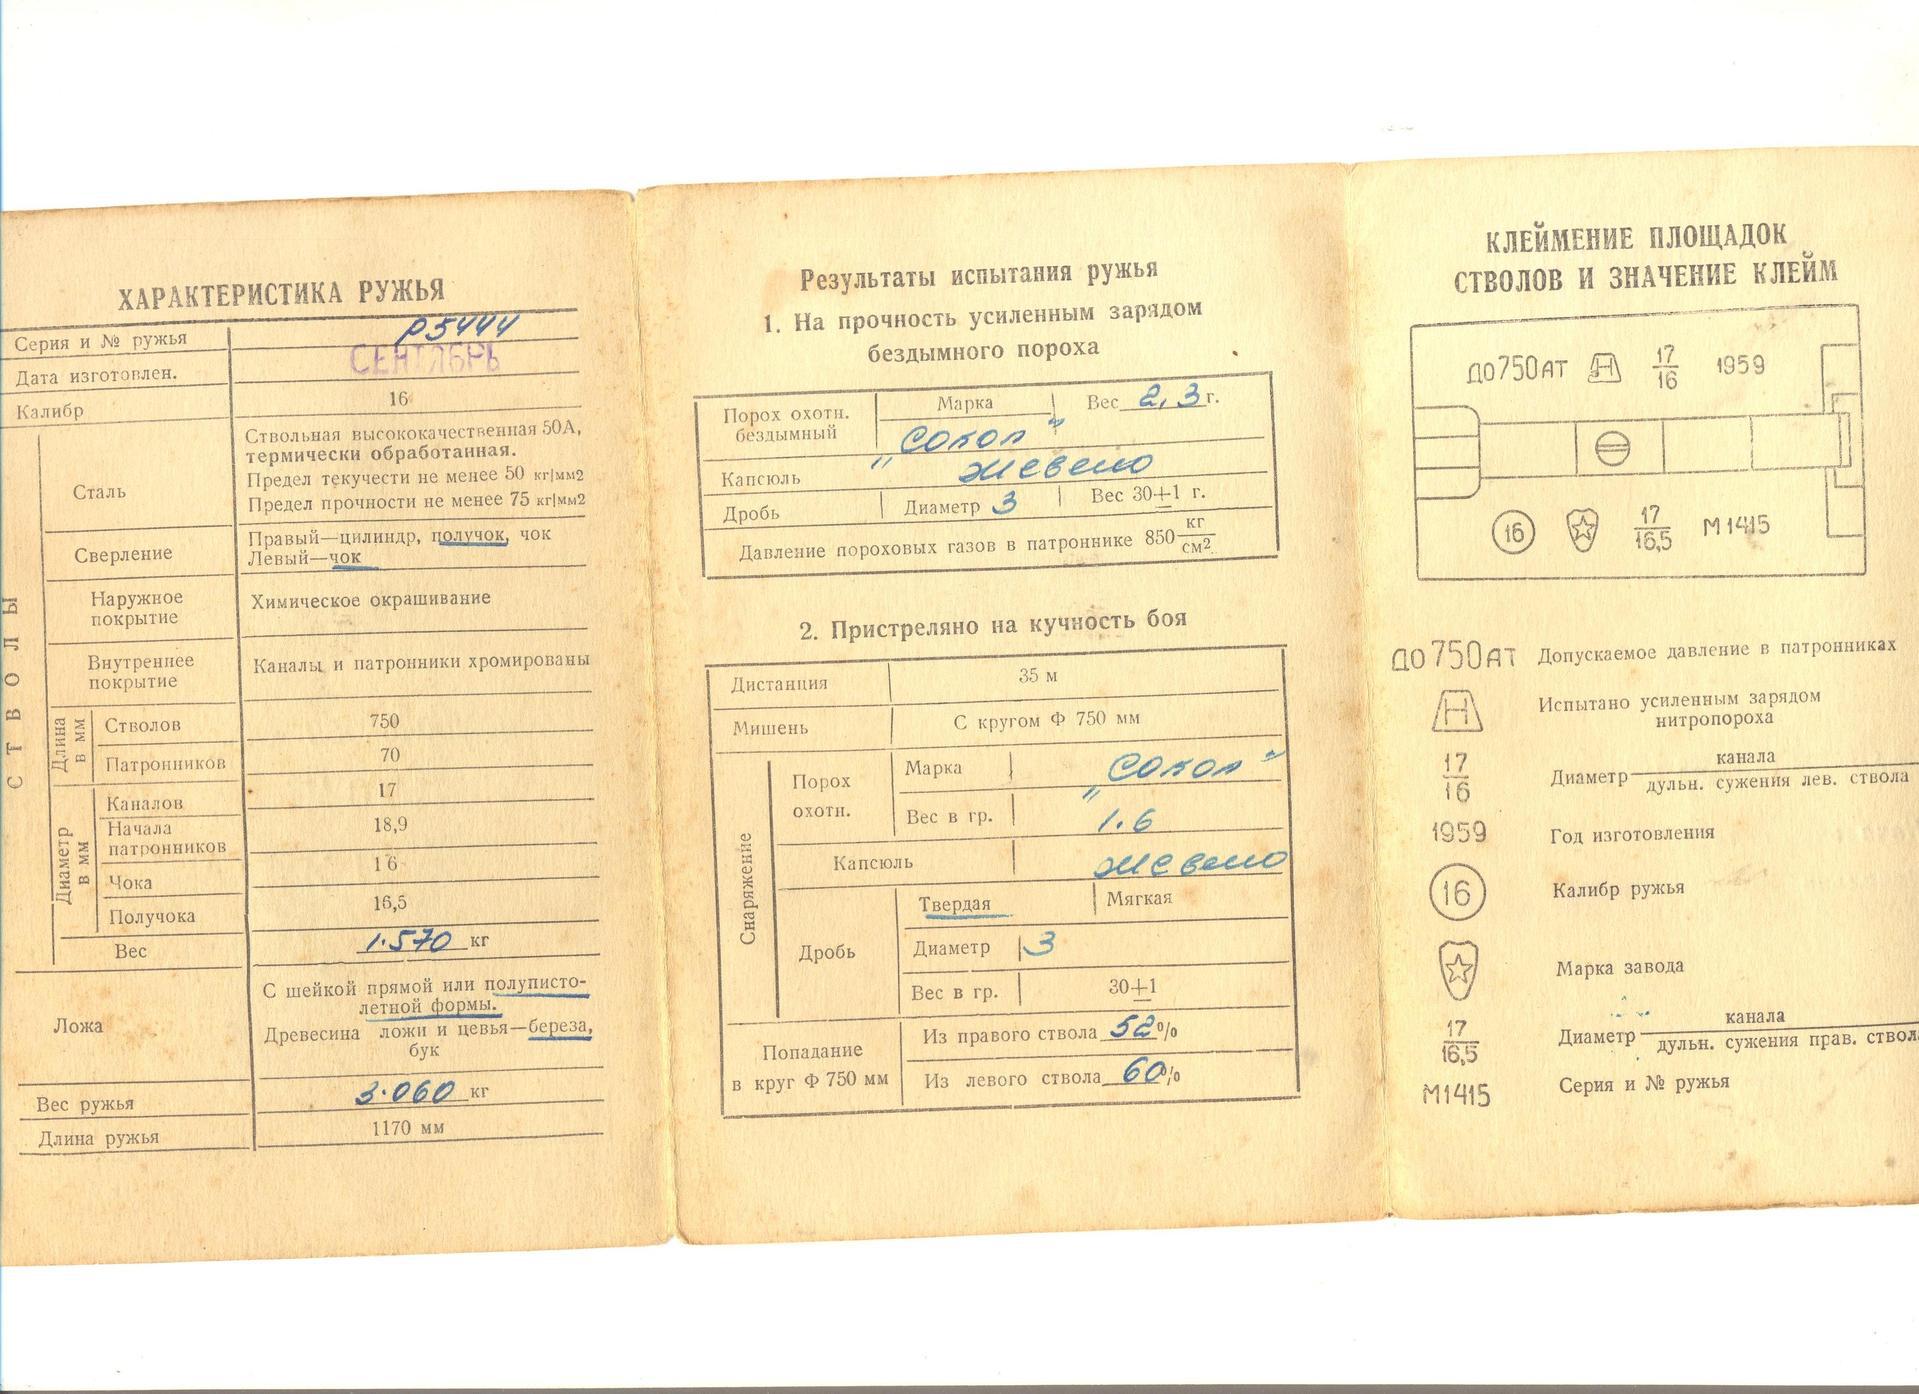 ХАРАКТЕРИСТИКА РУЖЬЯ
Серия и № ружья Р5444
Дата изготовлен. СЕНТЯБРЬ
Калибр 16
СТВОЛЫ
Сталь
Ствольная высококачественная 50А,
термически обработанная.
Предел текучести не менее 50 кг/мм2
Предел прочности не менее 75 кг/мм2
Сверление
Правый—цилиндр, получок, чок
Левый—чок
Наружное
покрытие
Химическое окрашивание
Внутреннее
покрытие
Каналы и патронники хромированы
Длина
в мм
Стволов 750
Патронников 70
Диаметр
в мм
Каналов 17
Начала
патронников
18,9
Чока 16
Получока 16,5
Вес 1.570 кг
Ложа
С шейкой прямой или полуписто-
летной формы.
Древесина ложи и цевья—береза,
бук
Вес ружья 3.060 кг
Длина ружья 1170 мм
Результаты испытания ружья
1. На прочность усиленным зарядом
бездымного пороха
Порох охотн.
бездымный
Марка Вес 2,3 г.
„Сокол"
Капсюль Жевело
Дробь Диаметр 3 Вес 30±1 г.
Давление пороховых газов в патроннике 850 кг
см2
2. Пристреляно на кучность боя
Дистанция 35 м
Мишень С кругом Ф 750 мм
Снаряжение
Порох
охотн.
Марка „Сокол"
Вес в гр. 1.6
Капсюль Жевело
Дробь
Твердая Мягкая
Диаметр 3
Вес в гр. 30±1
Попадание
в круг Ф 750 мм
Из правого ствола 52%
Из левого ствола 60%
КЛЕЙМЕНИЕ ПЛОЩАДОК
СТВОЛОВ И ЗНАЧЕНИЕ КЛЕЙМ
ДО750АТ Н 17
16 1959
16 17
16,5 М1415
ДО750АТ Допускаемое давление в патронниках
Н Испытано усиленным зарядом
нитропороха
17
16
Диаметр канала
дульн. сужения лев. ствола
1959 Год изготовления
16 Калибр ружья
Марка завода
17
16,5
Диаметр канала
дульн. сужения прав. ствол
М1415 Серия и № ружья